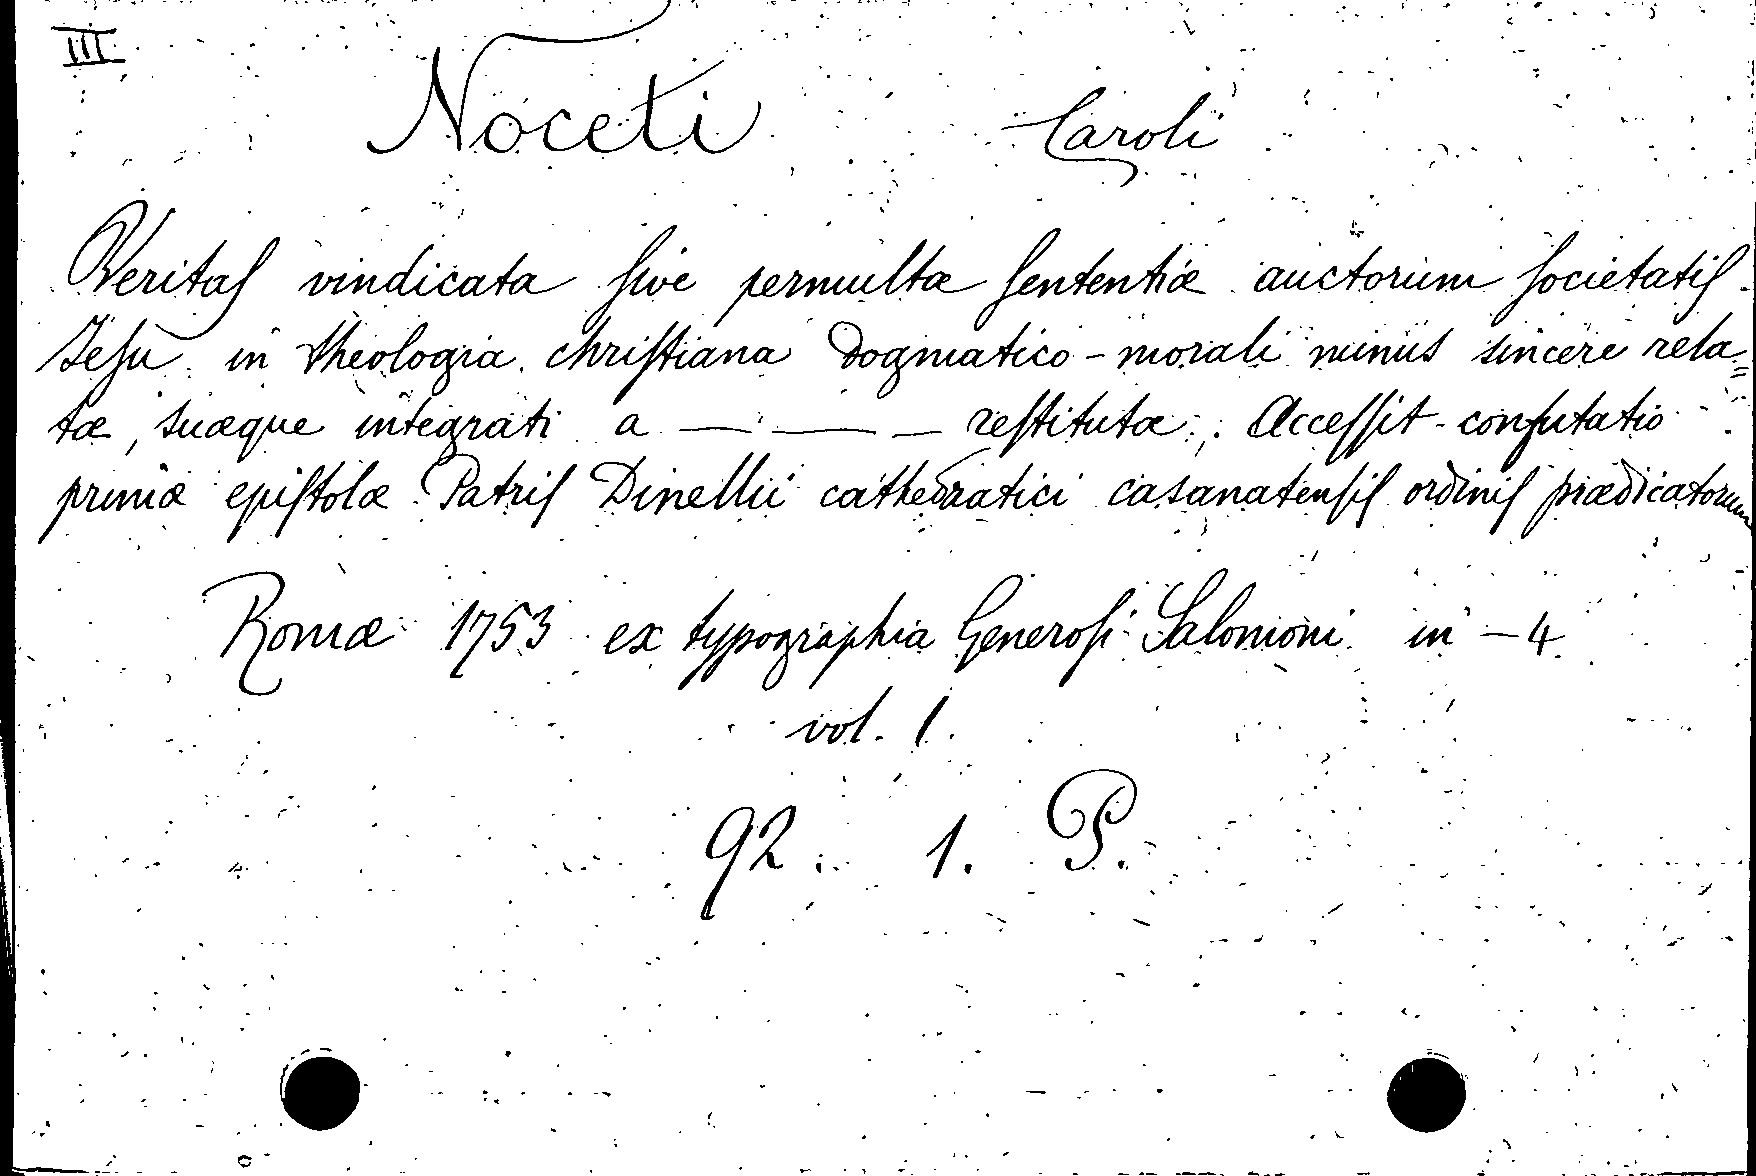 III.
Noceti Caroli
Veritaſ vindicata ſive permultæ ſententiæ auctorum ſocietatiſ
Jeſu in theologia chriſtiana dogmatico-morali minus sincere rela=
tæ, suæque integrati a — — — reſtitutæ; Acceſſit confutatio
primæ epiſtolæ Patriſ Dinellii cathedratici casanatenſiſ ordiniſ prædicatorum
Romæ 1753 ex typographia Generoſi Salomoni in-4
vol. 1.
92. 1. P.